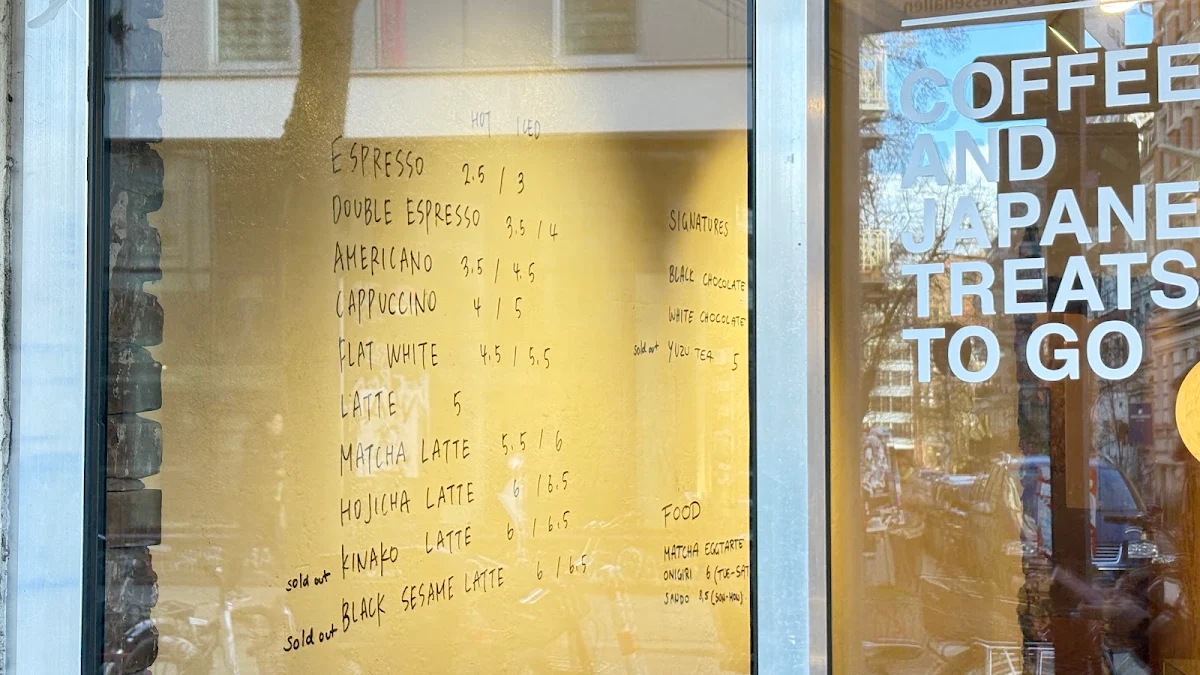 HOT ICED
ESPRESSO 2.5 / 3
DOUBLE ESPRESSO 3.5 / 4
AMERICANO 3.5 / 4.5
CAPPUCCINO 4 / 5
FLAT WHITE 4.5 / 5.5
LATTE 5
MATCHA LATTE 5.5 / 6
HOJICHA LATTE 6 / 6.5
KINAKO LATTE 6 / 6.5
sold out
BLACK SESAME LATTE 6 / 6.5
sold out
SIGNATURES
BLACK CHOCOLATE
WHITE CHOCOLATE
sold out YUZU TEA 5
FOOD
MATCHA EGGTARTE
ONIGIRI 6 (TUE-SAT
SANDO (SON-MON)
COFFEE
AND
JAPANE
TREATS
TO GO